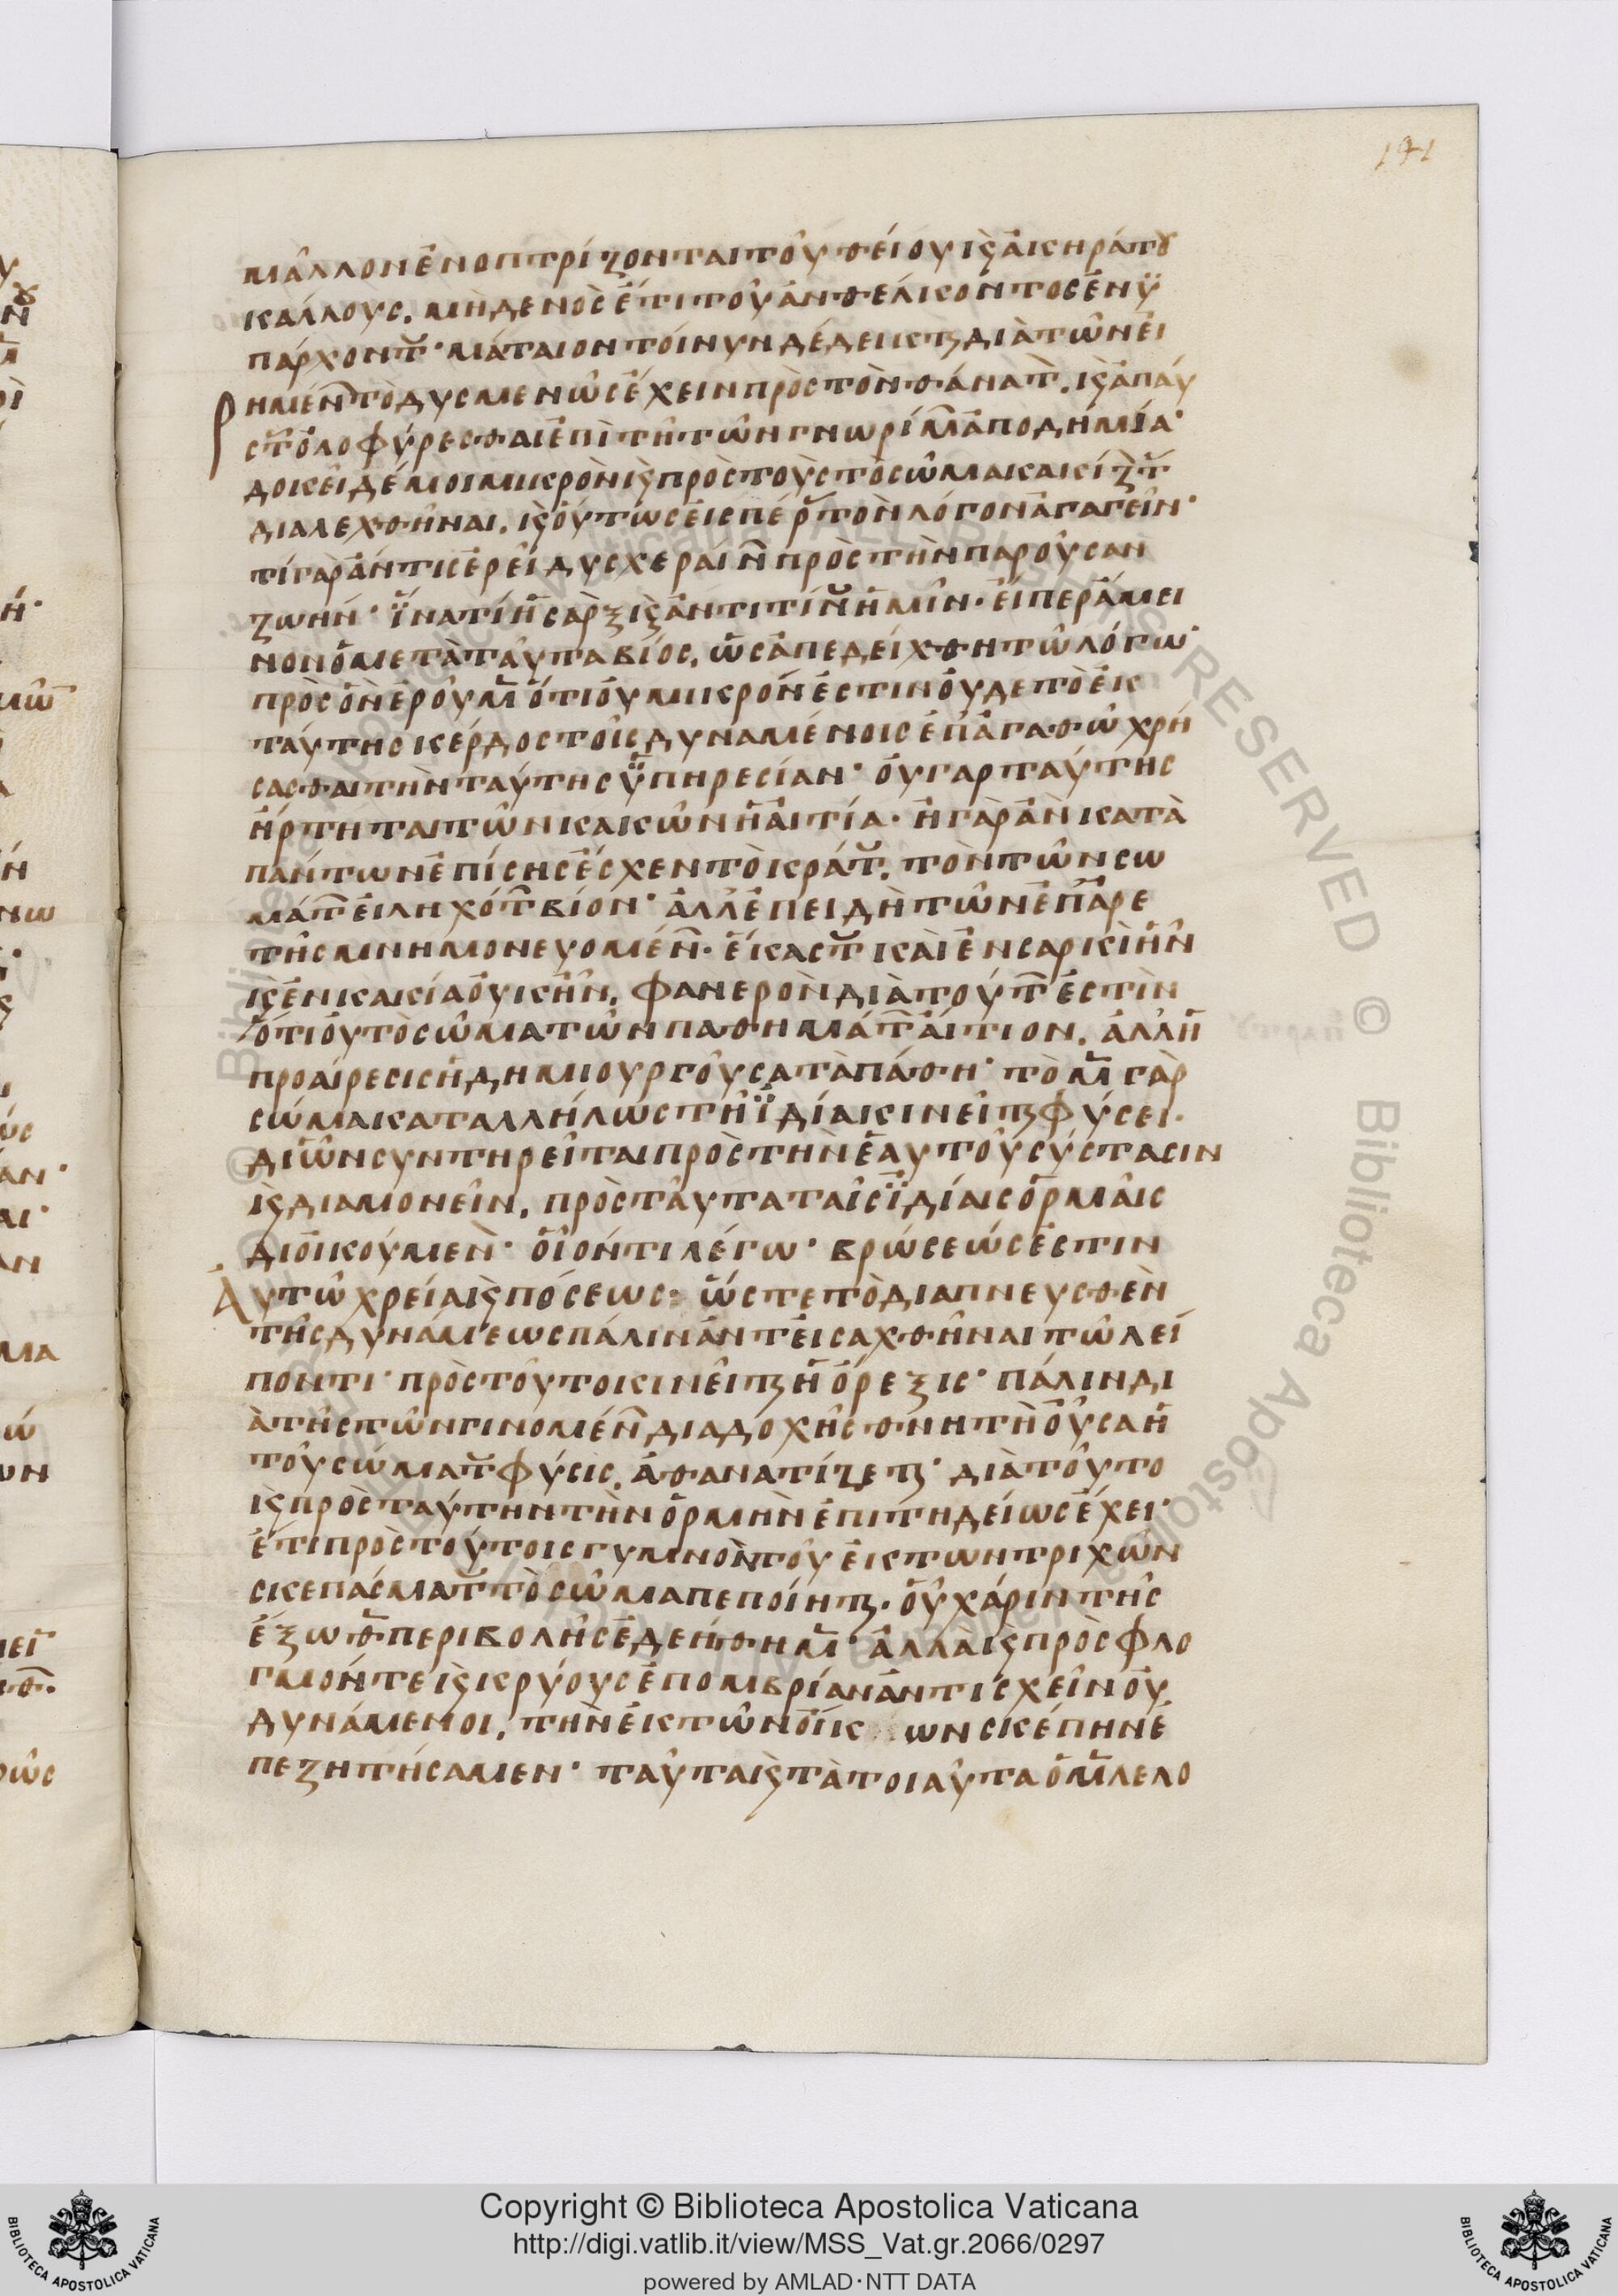 191
μᾶλλον ἐνοπτρίζονται τοῦ θείου κ̀ ἀκηράτου
κάλλους. μηδενὸς ἔτι τοῦ ἀνθέλκοντος ἐν ὑ
πάρχοντ̅· μάταιον τοίνυν δέδεικται διὰ τῶν εἰ
ρημέν̅ τὸ δυσμενῶς ἔχειν πρὸς τὸν θάνατ̅. κ̀ ἀπαύ
στ̅ ὀλοφύρεσθαι ἐπὶ τῆ τῶν γνωρίμ̅ ἀποδημία·
δοκεῖ δέ μοι μικρὸν κ̀ πρὸς τοὺς τὸ σῶμα κακίζ̅τ̅
διαλεχθῆναι. κ̀ οὕτως εἰς πέρ̅ τὸν λόγον ἀγαγεῖν·
τί γὰρ ἄν τις ἐρεῖ δυσχεραίν̅ πρὸς τὴν παροῦσαν
ζωήν· ἵνα τί ἡ σὰρξ κ̀ ἀντὶ τίν̅ ἡμῖν· εἴπερ ἀμεί
νον ὁ μετὰ ταῦτα βίος. ὡς ἀπεδείχθη τῶ λόγω·
πρὸς ὃν ἐροῦμ̅ ὅτι οὐ μικρόν ἐστιν οὐδὲ τὸ ἐκ
ταύτης κέρδος τοῖς δυναμένοις ἐπ̓ ἀγαθῶ χρή
σασθαι τὴν ταύτης ὑπηρεσίαν· οὐ γὰρ ταύτης
ἤρτηται τῶν κακῶν ἡ αἰτία· ἦ γὰρ ἂν κατὰ
πάντων ἐπίσης ἔσχεν τὸ κράτ̅. τὸν τῶν σω
μάτ̅ εἰληχότ̅ βίον· ἀλλ̓ ἐπειδὴ τῶν ἐπ̓ ἀρε
τῆς μνημονευομέν̅· ἕκαστ̅ καὶ ἐν σαρκὶ ἦν
κ̀ ἐν κακία οὐκ ἦν. φανερὸν διὰ τούτ̅ ἐστὶν
ὅτι οὐ τὸ σῶμα τῶν παθημάτ̅ αἴτιον. ἀλλ̓ ἡ
προαίρεσις ἡ δημιουργοῦσα τὰ πάθη· τὸ μ̅ γὰρ
σῶμα καταλλήλως τῆ ἰδία κινεῖται φύσει.
δἰ ὧν συντηρεῖται πρὸς τὴν ἑαυτοῦ σύστασιν
κ̀ διαμονεῖν. πρὸς ταῦτα ταῖς ἰδίαις ὁρμαῖς
διοικούμεν̅· οἷόν τι λέγω· βρώσεώς ἐστιν
Αὐτῶ χρεία κ̀ πόσεως· ὥστε τὸ διαπνευσθὲν
τῆς δυνάμεως πάλιν ἀντεισαχθῆναι τῶ λεί
ποντι· πρὸς τοῦτο κινεῖται ἡ ὄρεξις· πάλιν δι
ὰ τῆς τῶν γινομέν̅ διαδοχῆς θνητὴ οὖσα ἡ
τοῦ σώματ̅ φύσις. ἀθανατίζεται· διὰ τοῦτο
κ̀ πρὸς ταύτην τὴν ὁρμὴν ἐπιτηδείως ἔχει·
ἔτι πρὸς τούτοις γυμνὸν τοῦ ἐκ τῶν τριχῶν
σκεπάσματ̅ τὸ σῶμα πεποίηται. οὗ χάριν τῆς
ἔξωθ̅ περιβολῆς ἐδεήθημ̅· ἀλλὰ κ̀ πρὸς φλο
γμόν τε κ̀ κρύους ἐπομβρίαν ἀντισχεῖν οὐ
δυνάμενοι. τὴν ἐκ τῶν οἴκων σκέπην ἐ
πεζητήσαμεν· ταῦτα κ̀ τὰ τοιαῦτα ὁ μ̅ λελο
Copyright © Biblioteca Apostolica Vaticana
http://digi.vatlib.it/view/MSS_Vat.gr.2066/0297
powered by AMLAD·NTT DATA
BIBLIOTECA APOSTOLICA VATICANA
BIBLIOTECA APOSTOLICA VATICANA